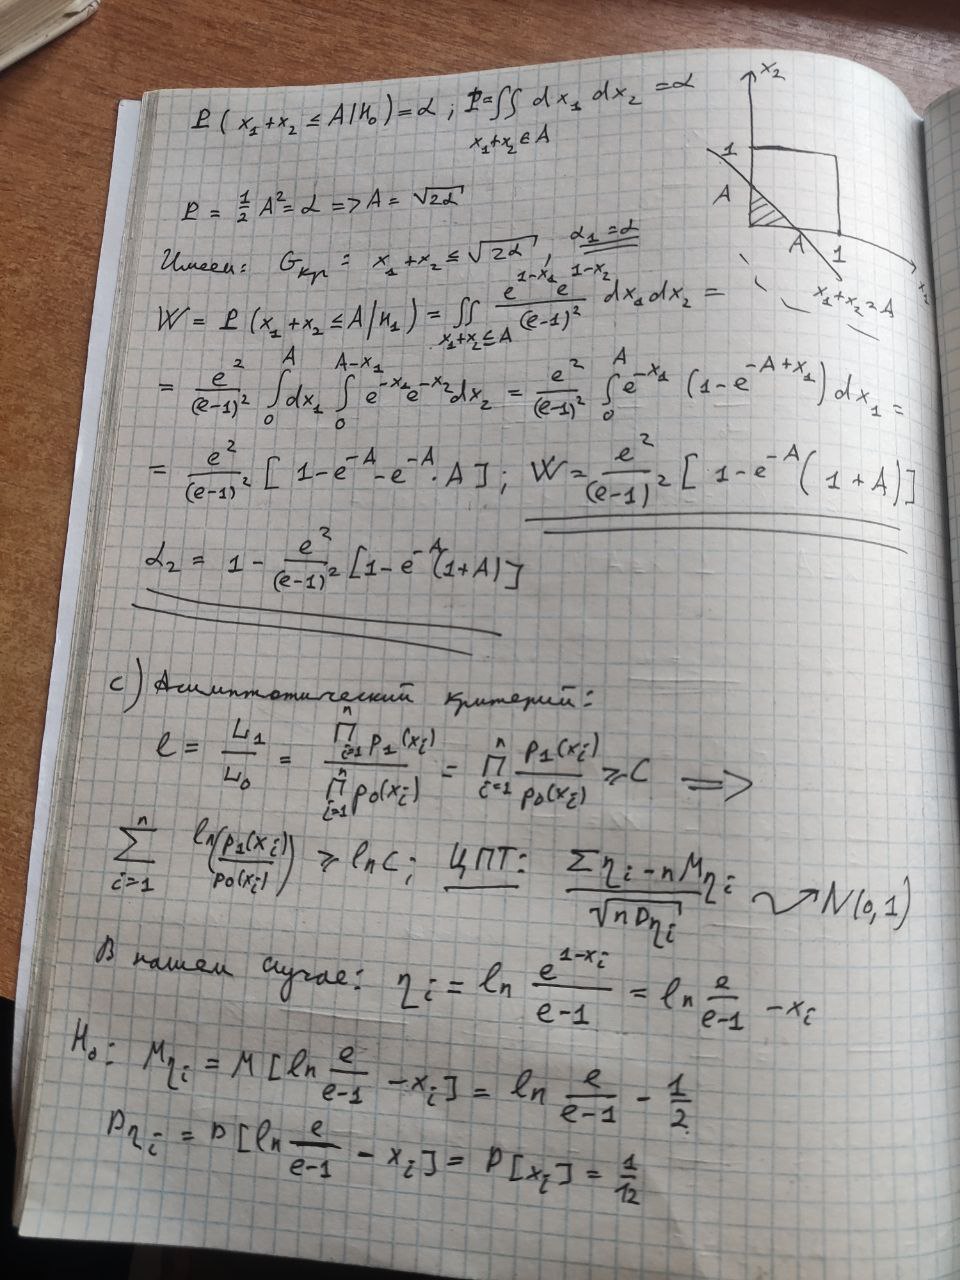 P(x₁+x₂ ≤ A|H₀) = α; P = ∬ dx₁ dx₂ = α
x₁+x₂ ∈ A
x₂
1
A
A
1
x₁+x₂=A
P = 1/2 A² = α => A = √(2α)
Имеем: G_кр: x₁+x₂ ≤ √(2α), α₁ = α
W = P(x₁+x₂ ≤ A|H₁) = ∬_{x₁+x₂ ≤ A} e^{1-x₁}e^{1-x₂}/(e-1)² dx₁dx₂ =
= e²/(e-1)² ∫₀^A dx₁ ∫₀^{A-x₁} e^{-x₁}e^{-x₂}dx₂ = e²/(e-1)² ∫₀^A e^{-x₁} (1-e^{-A+x₁})dx₁ =
= e²/(e-1)² [1-e^{-A}-e^{-A}·A]; W = e²/(e-1)² [1-e^{-A}(1+A)]
α₂ = 1 - e²/(e-1)² [1-e^{-A}(1+A)]
c) Асимптотический критерий:
l = L₁/L₀ = ∏_{i=1}^n p₁(x_i) / ∏_{i=1}^n p₀(x_i) = ∏_{i=1}^n p₁(x_i)/p₀(x_i) ≥ C =>
∑_{i=1}^n ln(p₁(x_i)/p₀(x_i)) ≥ ln C; ЦПТ: (∑η_i - nMη_i)/√(nDη_i) ⤳ N(0,1)
В нашем случае: η_i = ln e^{1-x_i}/(e-1) = ln e/(e-1) - x_i
H₀: Mη_i = M[ln e/(e-1) - x_i] = ln e/(e-1) - 1/2
Dη_i = D[ln e/(e-1) - x_i] = D[x_i] = 1/12